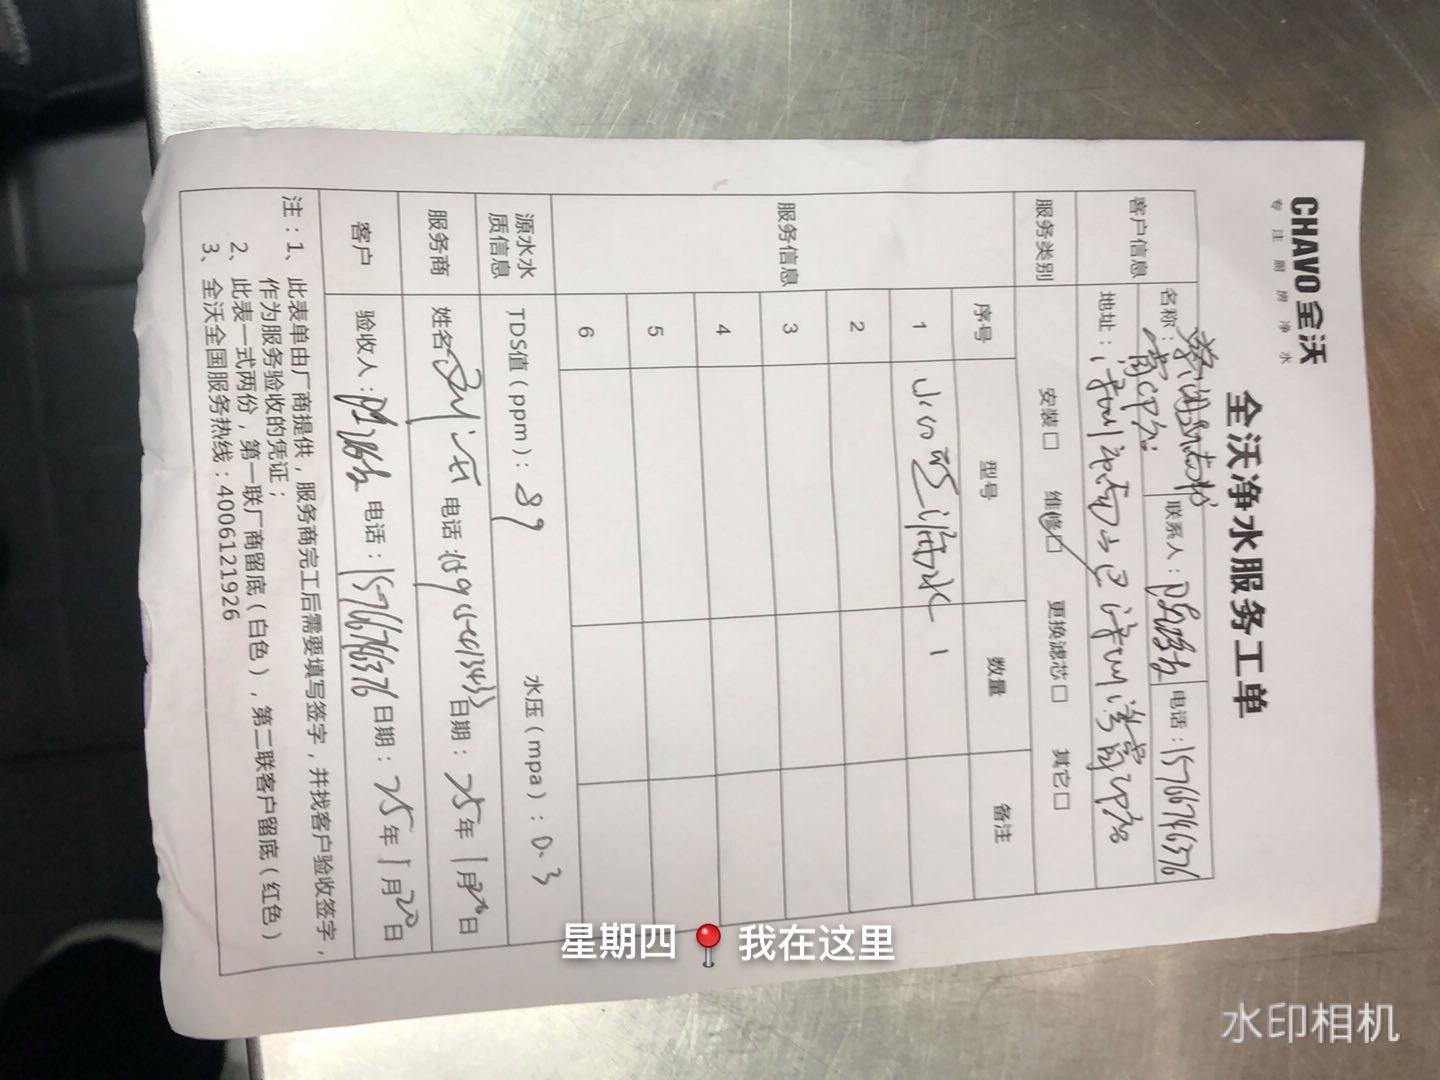 CHAVO 全沃
专注厨房净水
全沃净水服务工单
客户信息
名称：
联系人：
电话：15766716376
地址：
服务类别
安装□ 维修□ 更换滤芯□ 其它□
服务信息
序号 型号 数量 备注
1 1
2
3
4
5
6
源水水质信息
TDS值（ppm）：89 水压（mpa）：0.3
服务商
姓名 电话： 日期：25年1月20日
客户
验收人： 电话：15766716376 日期：25年1月20日
注：1、此表单由厂商提供，服务商完工后需要填写签字，并找客户验收签字，
作为服务验收的凭证；
2、此表一式两份，第一联厂商留底（白色），第二联客户留底（红色）
3、全沃全国服务热线：4006121926
星期四 📍 我在这里
水印相机